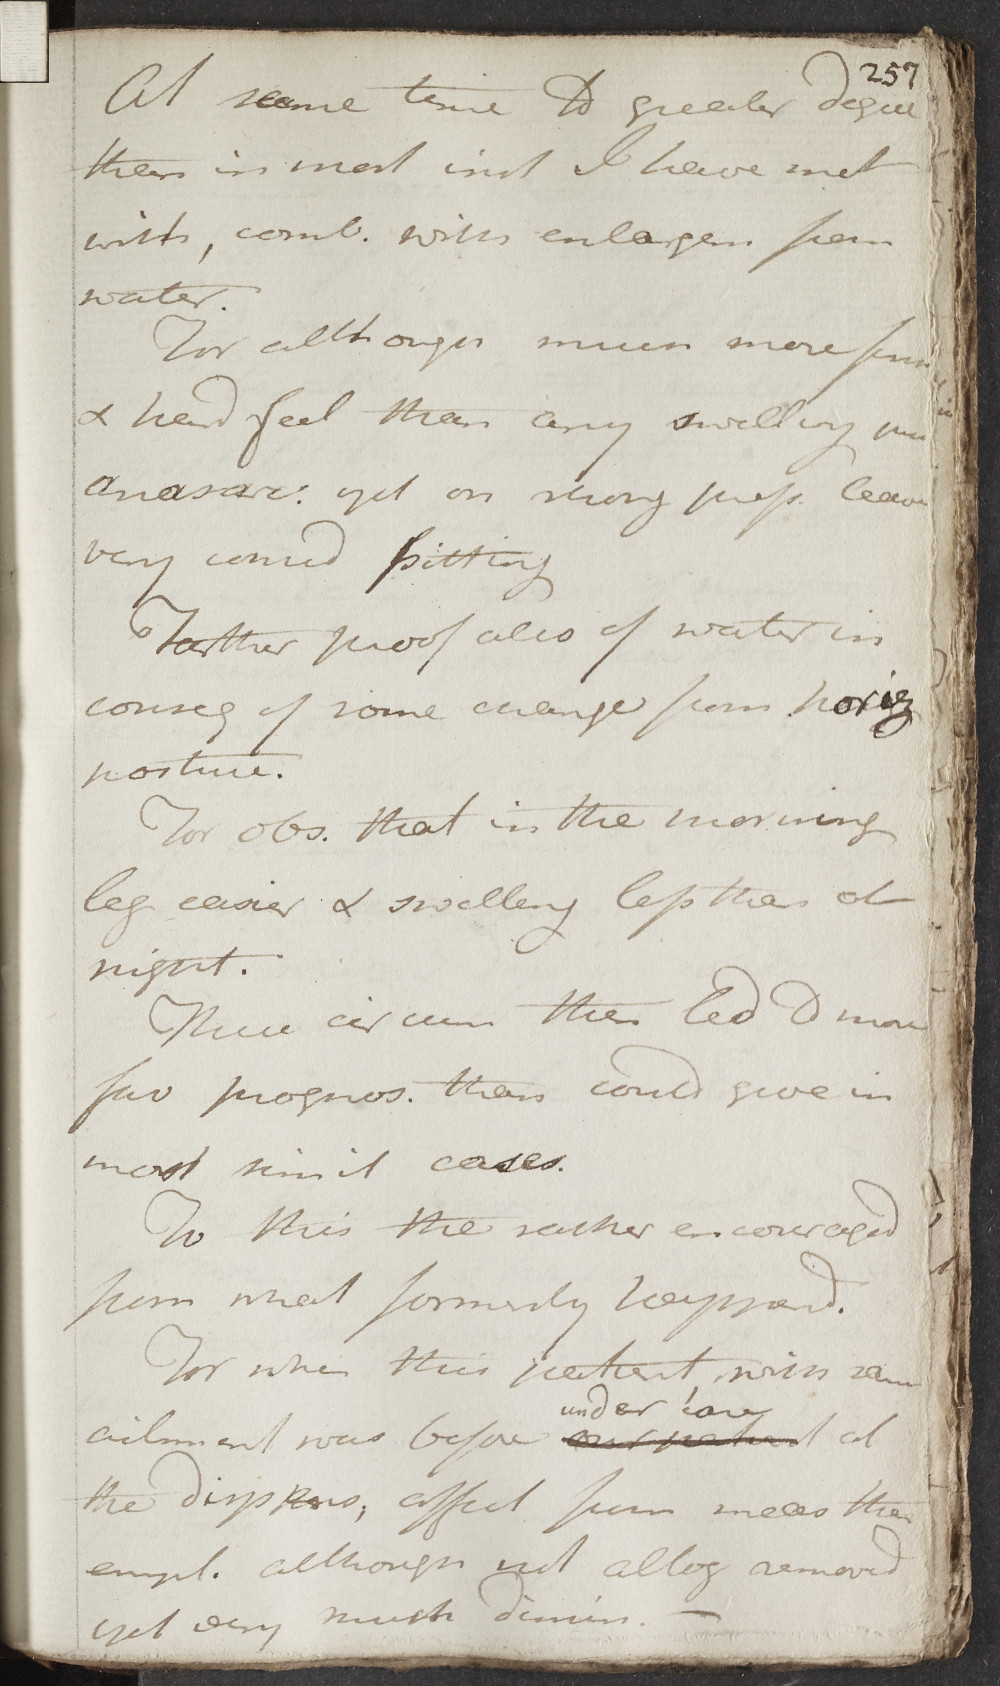 257
At same time to greater degree
than in most inst I have met
with, comb. with enlargem from
water.
For although much more firm
& hard feel than any swelling pur
anasarc. yet on strong press. leave
very consid pitting
Farther proof also of water in
conseq of some change from horiz
posture.
For obs. that in the morning
leg easier & swelling less than at
night.
These circum then led to more
fav prognos. than could give in
most simil cases.
To this the rather encouraged
from what formerly happened.
For when this patient, with same
ailment was before under care at
the Dispens, affect from meas then
empl. although not altog removed
yet very much dimin. —